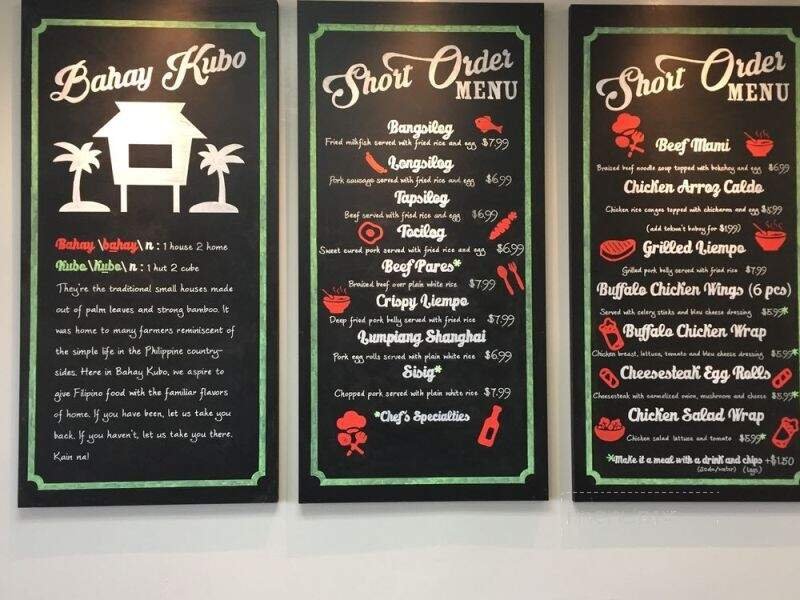 Bahay Kubo
Bahay \bahay\ n : 1 house 2 home
Kubo \Kubo\ n : 1 hut 2 cube
They're the traditional small houses made
out of palm leaves and strong bamboo. It
was home to many farmers reminiscent of
the simple life in the Philippine country-
sides. Here in Bahay Kubo, we aspire to
give Filipino food with the familiar flavors
of home. If you have been, let us take you
back. If you haven't, let us take you there.
Kain na!
Short Order
MENU
Bangsilog
Fried milkfish served with fried rice and egg $7.99
Longsilog
Pork sausage served with fried rice and egg $6.99
Tapsilog
Beef served with fried rice and egg $6.99
Tocilog
Sweet cured pork served with fried rice and egg $6.99
Beef Pares*
Braized beef over plain white rice $7.99
Crispy Liempo
Deep fried pork belly served with fried rice $7.99
Lumpiang Shanghai
Pork egg rolls served with plain white rice $6.99
Sisig*
Chopped pork served with plain white rice $7.99
*Chef's Specialties
Short Order
MENU
Beef Mami
Braized beef noodle soup topped with bokchoy and egg $6.99
Chicken Arroz Caldo
Chicken rice congee topped with chicharon and egg $5.99
(add tokwa't baboy for $1.99)
Grilled Liempo
Grilled pork belly served with fried rice $7.99
Buffalo Chicken Wings (6 pcs)
Served with celery sticks and bleu cheese dressing $5.99*
Buffalo Chicken Wrap
Chicken breast, lettuce, tomato and bleu cheese dressing $5.99*
Cheesesteak Egg Rolls
Cheesesteak with caramelized onion, mushroom and cheese $5.99*
Chicken Salad Wrap
Chicken salad lettuce and tomato $5.99*
*Make it a meal with a drink and chips +$1.50
(Soda/water)